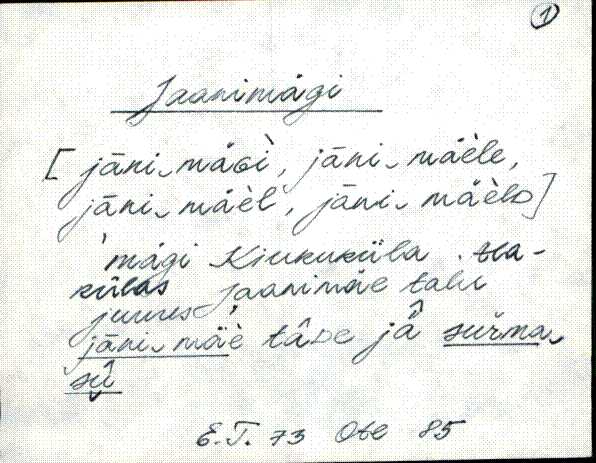 1
Jaanimägi
[ jāni‿mäɢì, jāni‿mäèle,
jāni‿mäèl, jāni‿mäèlᴅ]
'mägi Kiukuküla
külas Jaanimäe talu
juures
jāni‿mäè tâᴅe jâ̈ surma‿
E.T. 73 Ote 85